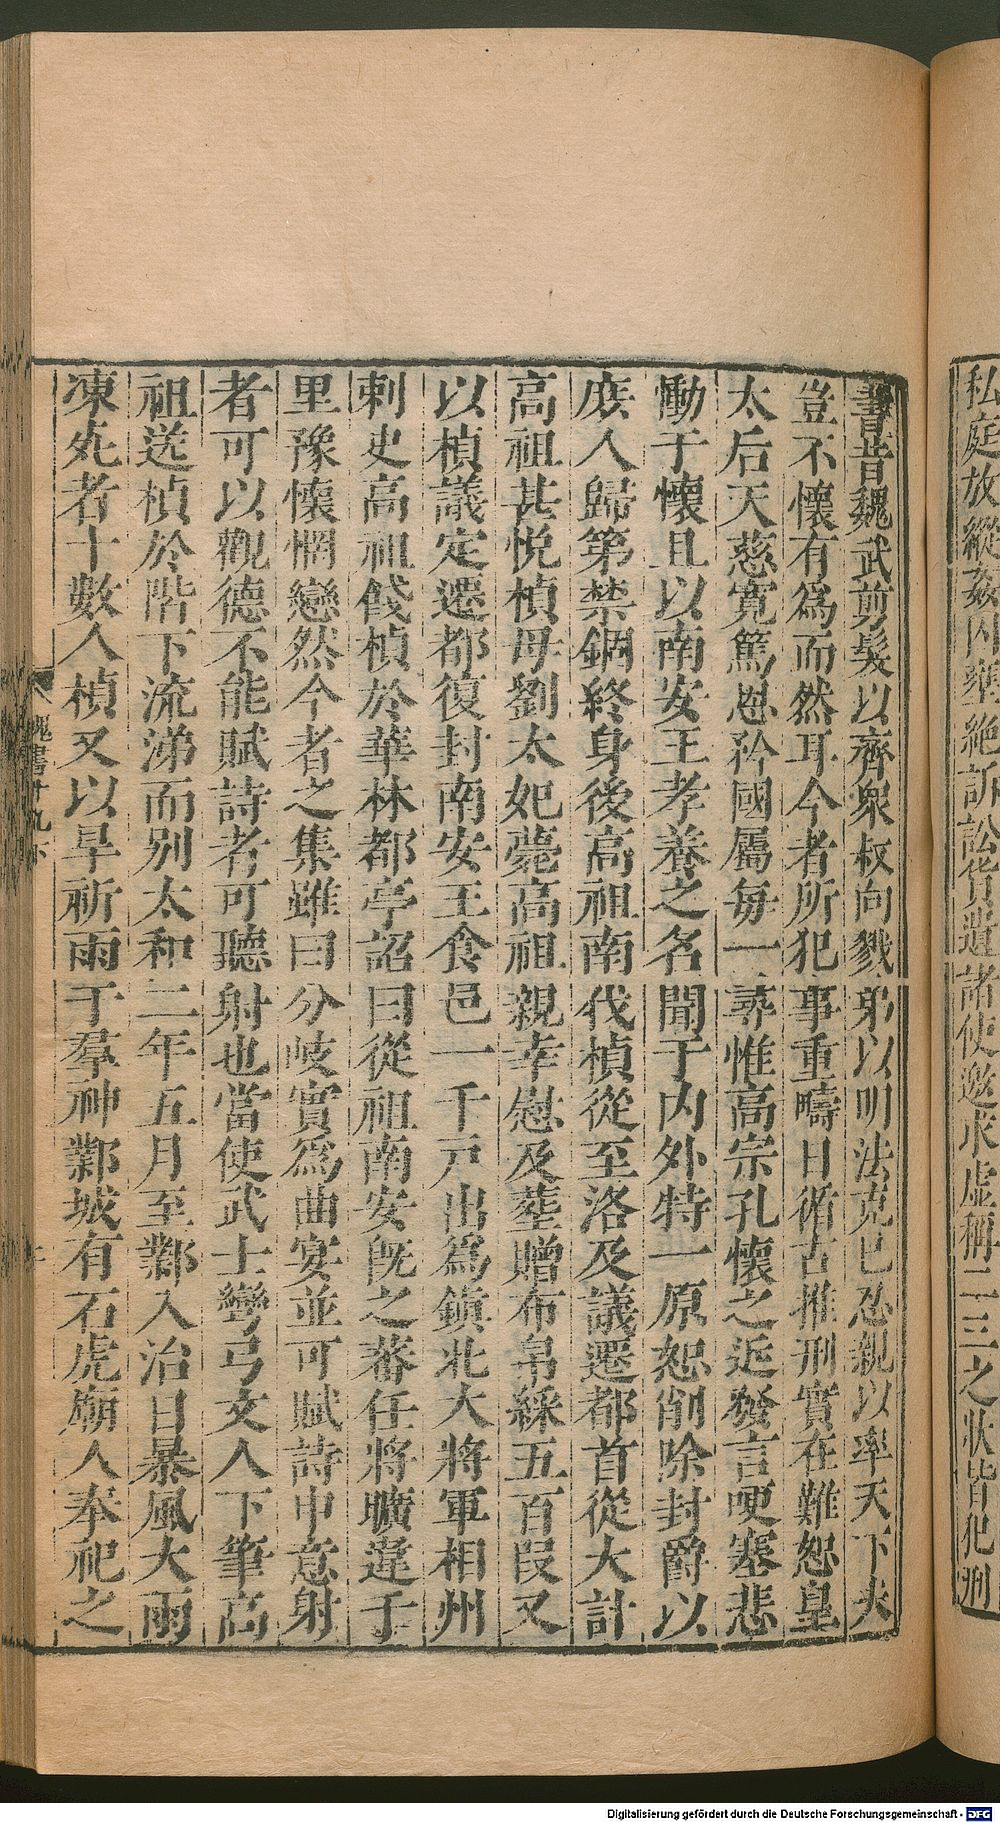 私庭放縱姦囚壅絕訴訟貨遺諸使邀求虛稱二三之狀皆犯刑
書昔魏武剪髮以齊眾叔向戮弟以明法克己忍親以率天下夫
豈不懷有為而然耳今者所犯事重疇日循古推刑實在難恕皇
太后天慈寬篤恩矜國屬每一尋惟高宗孔懷之近發言哽塞悲
慟于懷且以南安王孝養之名聞于內外特一原恕削除封爵以
庶人歸第禁錮終身後高祖南伐楨從至洛及議遷都首從大計
高祖甚悅楨母劉太妃薨高祖親幸慰及葬贈布帛綵五百段又
以楨議定遷都復封南安王食邑一千戶出為鎮北大將軍相州
刺史高祖餞楨於華林都亭詔曰從祖南安既之蕃任將曠違千
里豫懷惘戀然今者之集雖曰分岐實為曲宴並可賦詩申意射
者可以觀德不能賦詩者可聽射也當使武士彎弓文人下筆高
祖送楨於階下流涕而別太和二年五月至鄴入治日暴風大雨
凍死者十數人楨又以旱祈雨于羣神鄴城有石虎廟人奉祀之
魏書十九下
Digitalisierung gefördert durch die Deutsche Forschungsgemeinschaft - DFG